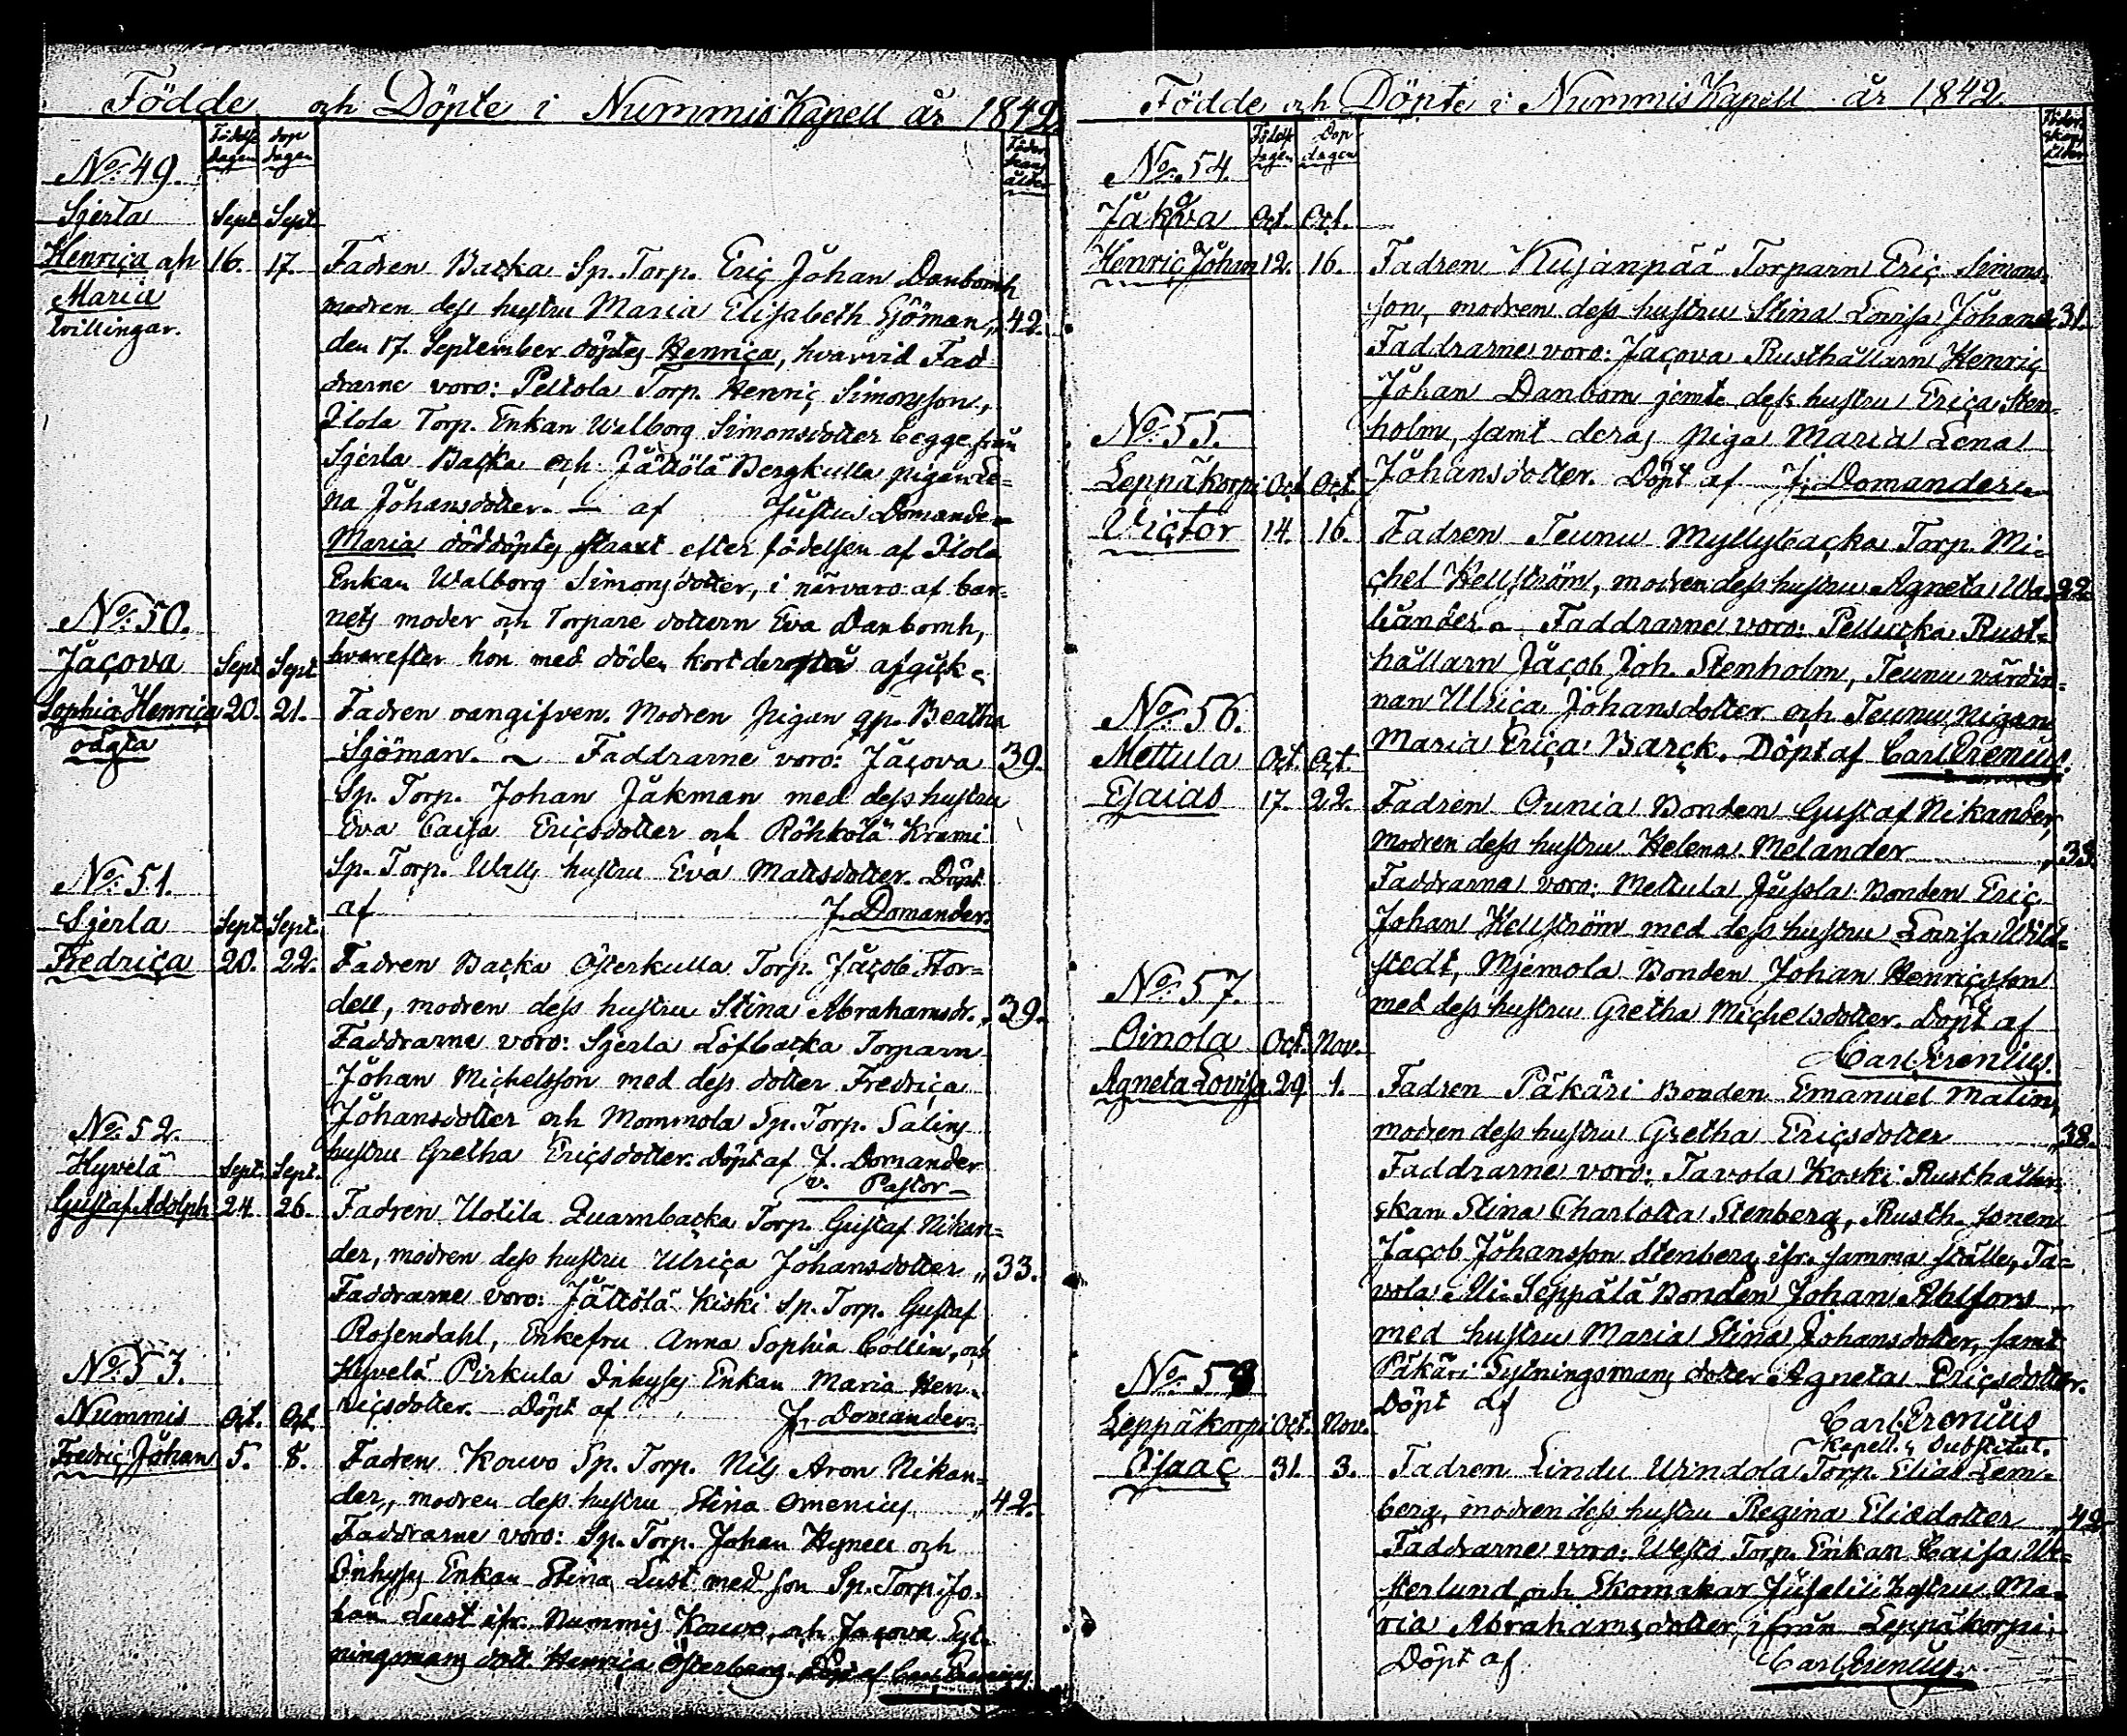 Födde och Döpte i Nummis Kapell år 1842.
Födelse dagen
dop dagen
Föder skans ålder
No. 49.
Sjerla Sept. Sept.
Henrica och 16. 17. Fadren Backa Sp. Torp. Eric Johan Danbomh
Maria modren dess hustru Maria Elisabeth Sjöman „ 42.
tvillingar. den 17. September döptes Henrica, hvarvid Fad
drarne voro: Peltola Torp. Henric Simonsson,
Ilola Torp. Enkan Walborg Simonsdotter begge från
Sjerla Backa och Jättölä Bergkulla pigan Le=
na Johansdotter. — af Justus Domander
Maria döddöptes straxt efter födelsen af Ilola
Enkan Walborg Simonsdotter, i närvaro af bar=
nets moder och Torpare dottern Eva Danbomh,
No. 50.
Jacova Sept. Sept. hvarefter hon med döden kort derpå afgick.
Sophia Henrica 20. 21. Fadren oangifven. Modren Pigan qp. Beatha
oägta Sjöman. Faddrarne voro: Jacova 39.
Sp. Torp. Johan Jåkman med dess hustru
Eva Caisa Ericsdotter och Röhkölä Krami
No. 51.
Sp. Torp. Walls hustru Eva Mattsdotter. Döpt
Sjerla Sept. Sept. af J. Domander.
Fredrica 20. 22. Fadren Backa Österkulla Torp. Jacob Stor=
dell, modren dess hustru Stina Abrahamsdr. „ 39.
Faddrarne voro: Sjerla Löfbacka Torparn
Johan Michelsson med dess dotter Fredrica
Johansdotter och Mommola Sp. Torp. Salins
No. 52.
Hyvelä Sept. Sept. hustru Gretha Ericsdotter. Döpt af J. Domander
v. Pastor
Gustaf Adolph 24. 26. Fadren Uotila Quarnbacka Torp. Gustaf Nikan=
der, modren dess hustru Ulrica Johansdotter „ 33.
Faddrarne voro: Jättölä Kiski Sp. Torp. Gustaf
Rosendahl, Enkefru Anna Sophia Collin, och
No. 53.
Hyvelä Pirkula Inhyses Enkan Maria Hen=
Nummis Oct. Oct. ricsdotter. Döpt af J. Domander.
Fredric Johan 5. 8. Fadren Kouvo Sp. Torp. Nils Aron Nikan=
der, modren dess hustru Stina Omenius „ 42.
Faddrarne voro: Sp. Torp. Johan Hynell och
Inhyses Enkan Stina Lust med son Sp. Torp. Jo=
han Lust ifr. Nummis Kouvo, och Jacova Syt=
ningsmans dott. Henrica Österberg. Döpt af Carl Erenius
Födde och Döpte i Nummis Kapell år 1842.
Födelse dagen
Dop dagen
Föder skans ålder
No. 54.
Jakova Oct. Oct.
Henric Johan 12. 16. Fadren Kujanpää Torparn Eric Simons=
son, modren dess hustru Stina Lovisa Johansd. 31.
Faddrarne voro: Jacova Rusthållarn Henric
Johan Danbom jemte dess hustru Erica Sten=
No. 55.
holm, samt deras piga Maria Lena
Leppäkorpi Oct. Oct. Johansdotter. Döpt af J. Domander.
Victor 14. 16. Fadren Teunu Myllybacka Torp. Mi=
chel Hellström, modren dess hustru Agneta Wa= 22.
lander. Faddrarne voro: Pellucka Rust=
hållarn Jacob Joh. Stenholm, Teunu värdin=
No. 56.
nan Ulrica Johansdotter och Teunu Pigan
Mettula Oct. Oct. Maria Erica Barck. Döpt af Carl Erenius.
Esaias 17. 22. Fadren Ounia Bonden Gustaf Nikander,
modren dess hustru Helena Melander „ 38.
Faddrarna voro: Mettula Jussola Bonden Eric
Johan Hellström med dess hustru Lovisa Wild=
No. 57.
stedt, Mjemola Bonden Johan Henricsson
med dess hustru Gretha Michelsdotter. Döpt af
Oinola Oct. Nov. Carl Erenius.
Agneta Lovisa 29. 1. Fadren Päkäri Bonden Emanuel Malin,
modren dess hustru Gretha Ericsdotter „ 38.
Faddrarne voro: Tavola Koski Rusthåller=
skan Stina Charlotta Stenberg, Rusth. sonen
Jacob Johansson Stenberg ifr. samma ställe, Ta=
vola Ali-Seppälä Bonden Johan Ahlfors
med hustru Maria Stina Johansdotter, samt
No. 58
Päkäri Sytningsmans dotter Agneta Ericsdotter.
Döpt af Carl Erenius
Kapell. Substitut.
Leppäkorpi Oct. Nov.
Isaac 31. 3. Fadren Lindu Uindola Torp. Elias Lem=
berg, modren dess hustru Regina Eliædotter „ 42
Faddrarne voro: Westo Torp. Enkan Caisa We=
sterlund och Skomakar Juselii hustru Ma=
ria Abrahamsdotter, ifrån Leppäkorpi.
Döpt af Carl Erenius.